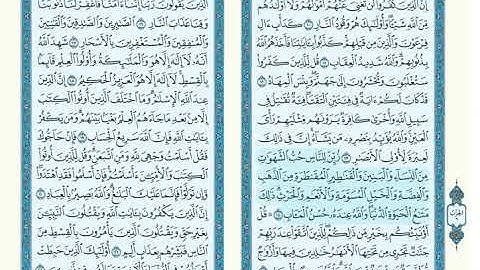 إِنَّ الَّذِينَ كَفَرُوا لَن تُغْنِيَ عَنْهُمْ أَمْوَالُهُمْ وَلَا أَوْلَادُهُم
مِّنَ اللَّهِ شَيْئًا وَأُولَٰئِكَ هُمْ وَقُودُ النَّارِ كَدَأْبِ ءَالِ
فِرْعَوْنَ وَالَّذِينَ مِن قَبْلِهِمْ كَذَّبُوا بِـَٔايَٰتِنَا فَأَخَذَهُمُ اللَّهُ
بِذُنُوبِهِمْ وَاللَّهُ شَدِيدُ الْعِقَابِ قُل لِّلَّذِينَ كَفَرُوا
سَتُغْلَبُونَ وَتُحْشَرُونَ إِلَىٰ جَهَنَّمَ وَبِئْسَ الْمِهَادُ
قَدْ كَانَ لَكُمْ ءَايَةٌ فِي فِئَتَيْنِ الْتَقَتَا فِئَةٌ تُقَٰتِلُ فِي
سَبِيلِ اللَّهِ وَأُخْرَىٰ كَافِرَةٌ يَرَوْنَهُم مِّثْلَيْهِمْ رَأْيَ
الْعَيْنِ وَاللَّهُ يُؤَيِّدُ بِنَصْرِهِ مَن يَشَاءُ إِنَّ فِي ذَٰلِكَ
لَعِبْرَةً لِّأُولِي الْأَبْصَٰرِ زُيِّنَ لِلنَّاسِ حُبُّ الشَّهَوَٰتِ
مِنَ النِّسَاءِ وَالْبَنِينَ وَالْقَنَٰطِيرِ الْمُقَنطَرَةِ مِنَ الذَّهَبِ
وَالْفِضَّةِ وَالْخَيْلِ الْمُسَوَّمَةِ وَالْأَنْعَٰمِ وَالْحَرْثِ ذَٰلِكَ
مَتَٰعُ الْحَيَوٰةِ الدُّنْيَا وَاللَّهُ عِندَهُ حُسْنُ الْمَـَٔابِ قُلْ
أَؤُنَبِّئُكُم بِخَيْرٍ مِّن ذَٰلِكُمْ لِلَّذِينَ اتَّقَوْا عِندَ رَبِّهِمْ
جَنَّٰتٌ تَجْرِي مِن تَحْتِهَا الْأَنْهَٰرُ خَٰلِدِينَ فِيهَا وَأَزْوَٰجٌ
الَّذِينَ يَقُولُونَ رَبَّنَا إِنَّنَا ءَامَنَّا فَاغْفِرْ لَنَا ذُنُوبَنَا
وَقِنَا عَذَابَ النَّارِ الصَّٰبِرِينَ وَالصَّٰدِقِينَ وَالْقَٰنِتِينَ
وَالْمُنفِقِينَ وَالْمُسْتَغْفِرِينَ بِالْأَسْحَارِ شَهِدَ اللَّهُ
أَنَّهُ لَا إِلَٰهَ إِلَّا هُوَ وَالْمَلَٰئِكَةُ وَأُولُوا الْعِلْمِ قَائِمًا
بِالْقِسْطِ لَا إِلَٰهَ إِلَّا هُوَ الْعَزِيزُ الْحَكِيمُ إِنَّ الدِّينَ
عِندَ اللَّهِ الْإِسْلَٰمُ وَمَا اخْتَلَفَ الَّذِينَ أُوتُوا الْكِتَٰبَ
إِلَّا مِن بَعْدِ مَا جَاءَهُمُ الْعِلْمُ بَغْيًا بَيْنَهُمْ وَمَن يَكْفُرْ
بِـَٔايَٰتِ اللَّهِ فَإِنَّ اللَّهَ سَرِيعُ الْحِسَابِ فَإِنْ حَاجُّوكَ
فَقُلْ أَسْلَمْتُ وَجْهِيَ لِلَّهِ وَمَنِ اتَّبَعَنِ وَقُل لِّلَّذِينَ أُوتُوا
الْكِتَٰبَ وَالْأُمِّيِّينَ ءَأَسْلَمْتُمْ فَإِنْ أَسْلَمُوا فَقَدِ اهْتَدَوا
وَّإِن تَوَلَّوْا فَإِنَّمَا عَلَيْكَ الْبَلَٰغُ وَاللَّهُ بَصِيرٌ بِالْعِبَادِ
إِنَّ الَّذِينَ يَكْفُرُونَ بِـَٔايَٰتِ اللَّهِ وَيَقْتُلُونَ النَّبِيِّينَ
بِغَيْرِ حَقٍّ وَيَقْتُلُونَ الَّذِينَ يَأْمُرُونَ بِالْقِسْطِ مِنَ
النَّاسِ فَبَشِّرْهُم بِعَذَابٍ أَلِيمٍ أُولَٰئِكَ الَّذِينَ حَبِطَتْ